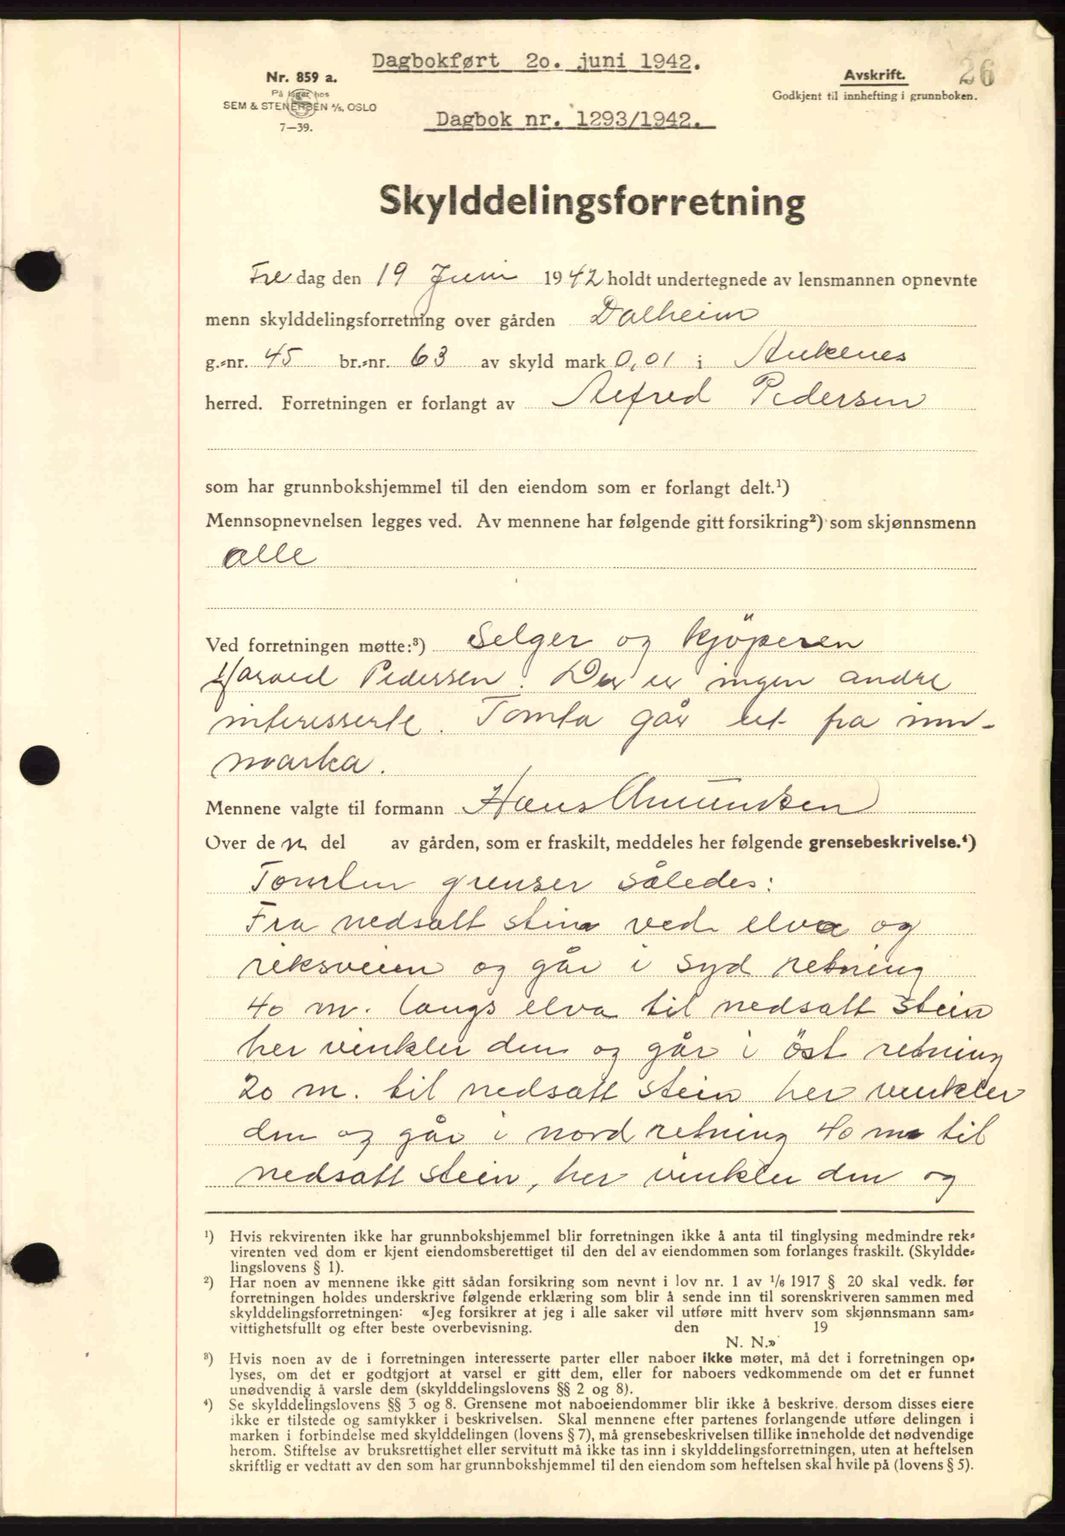 Dagbokført 2o. juni 1942.
26
Nr. 859 a.
På lager hos
SEM & STENERSEN A/S, OSLO
7—39.
Avskrift.
Godkjent til innhefting i grunnboken.
Dagbok nr. 1293/1942.
Skylddelingsforretning
Fredag den 19 Juni 1942 holdt undertegnede av lensmannen opnevnte
menn skylddelingsforretning over gården Dalheim
g.-nr. 45 br.-nr. 63 av skyld mark 0,01 i Ankenes
herred. Forretningen er forlangt av Alfred Pedersen
som har grunnbokshjemmel til den eiendom som er forlangt delt.¹)
Mennsopnevnelsen legges ved. Av mennene har følgende gitt forsikring²) som skjønnsmenn
alle
Ved forretningen møtte:³) Selger og kjöperen
Harald Pedersen. Der er ingen andre
interesserte. Tomta går ut fra inn-
marka.
Mennene valgte til formann Hans Amundsen
Over den del av gården, som er fraskilt, meddeles her følgende grensebeskrivelse.⁴)
Tomten grenser således:
Fra nedsatt stein ved elva og
riksveien og går i syd retning
40 m. langs elva til nedsatt stein
her vinkler den og går i öst retning
20 m. til nedsatt stein her vinkler
den og går i nord retning 40 m til
nedsatt stein, her vinkler den og
¹) Hvis rekvirenten ikke har grunnbokshjemmel blir forretningen ikke å anta til tinglysing medmindre rek-
virenten ved dom er kjent eiendomsberettiget til den del av eiendommen som forlanges fraskilt. (Skyldde-
lingslovens § 1).
²) Har noen av mennene ikke gitt sådan forsikring som nevnt i lov nr. 1 av 1/6 1917 § 20 skal vedk. før
forretningen holdes underskrive følgende erklæring som blir å sende inn til sorenskriveren sammen med
skylddelingsforretningen: «Jeg forsikrer at jeg i alle saker vil utføre mitt hverv som skjønnsmann sam-
vittighetsfullt og efter beste overbevisning. den 19
N. N.»
³) Hvis noen av de i forretningen interesserte parter eller naboer ikke møter, må det i forretningen op-
lyses, om det er godtgjort at varsel er gitt dem, eller for naboers vedkommende om det er funnet
unødvendig å varsle dem (skylddelingslovens §§ 2 og 8).
⁴) Se skylddelingslovens §§ 3 og 8. Grensene mot naboeiendommer blir ikke å beskrive, dersom disses eiere
ikke er tilstede og samtykker i beskrivelsen. Skal mennene efter partenes forlangende utføre delingen i
marken i forbindelse med skylddelingen (lovens § 7), må grensebeskrivelsen tillike inneholde det nødvendige
herom. Stiftelse av bruksrettighet eller servitutt må ikke tas inn i skylddelingsforretningen, uten at heftelsen
skriftlig er vedtatt av den som har grunnbokshjemmel til den eiendom som heftelsen skal hvile på (lovens § 5).